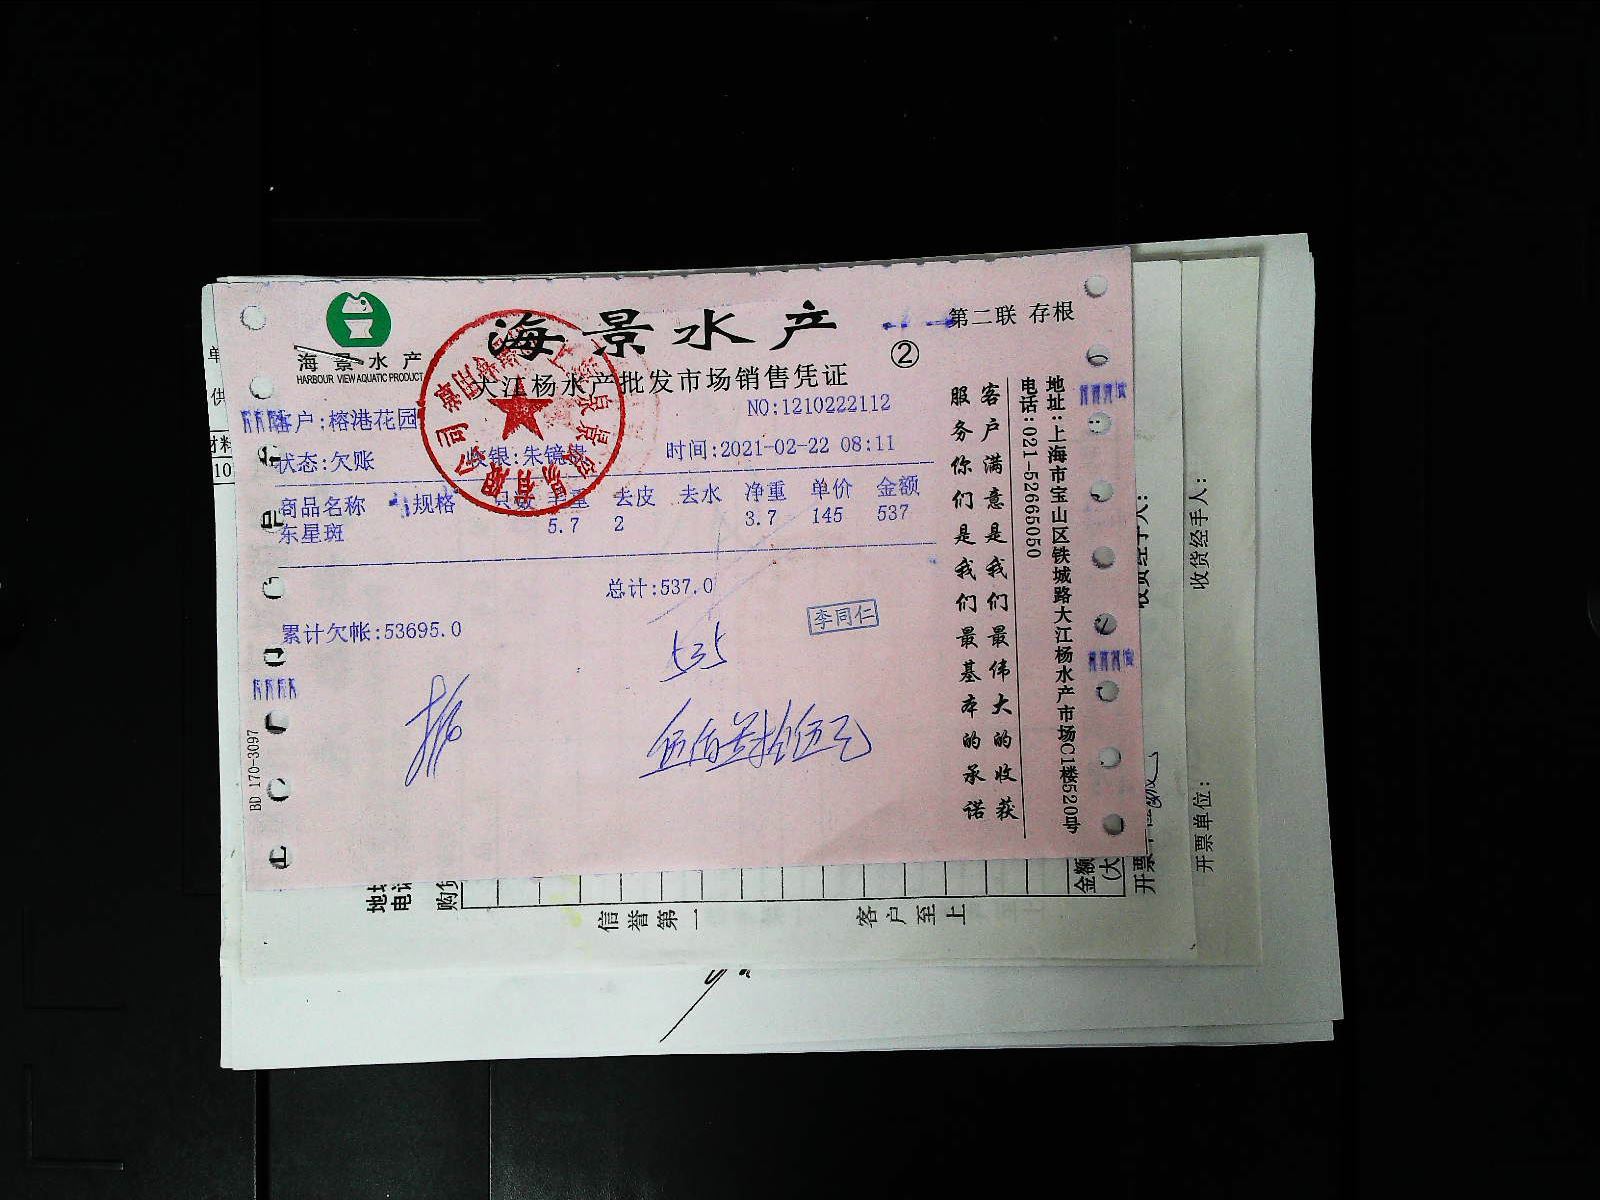 海景水产
HARBOUR VIEW AQUATIC PRODUCT
海景水产
大江杨水产批发市场销售凭证
②
第二联 存根
NO:1210222112
客户:榕港花园
状态:欠账
收银:朱镜贵
时间:2021-02-22 08:11
商品名称 规格 只数 毛重 去皮 去水 净重 单价 金额
东星斑 5.7 2 3.7 145 537
总计:537.0
累计欠帐:53695.0
李同仁
535
伍佰叁拾伍元
BD 170-3097
客户满意是我们最伟大的收获
服务你们是我们最基本的承诺
地址:上海市宝山区铁城路大江杨水产市场C1楼520号
电话:021-52665050
单
供
材料
10
购货
信誉第一
客户至上
金额
(大
收货经手人:
开票单位: